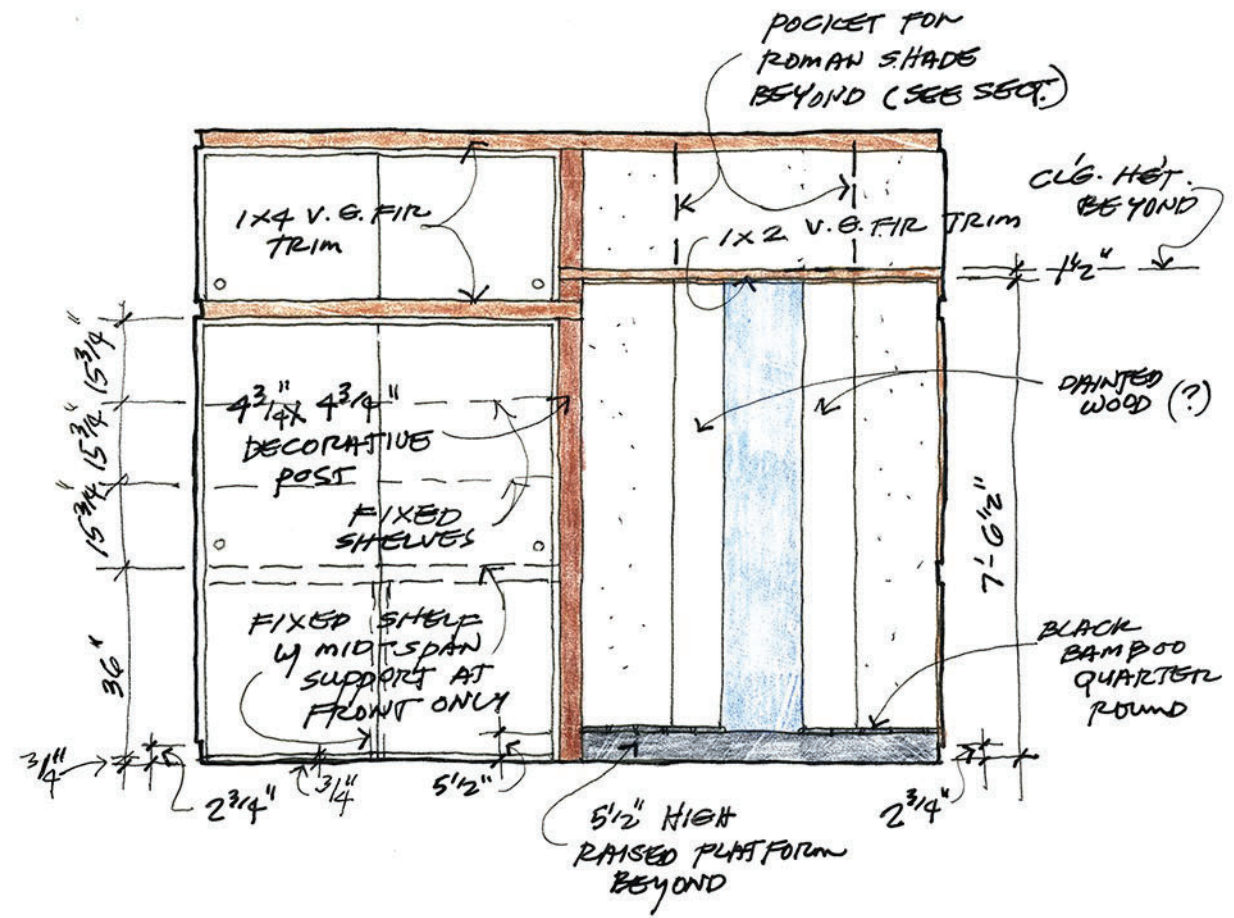 POCKET FOR
ROMAN SHADE
BEYOND (SEE SECT.)
CL'G. HGT.
BEYOND
1X4 V.G. FIR
TRIM
1X2 V.G. FIR TRIM
1 1/2"
15 3/4"
15 3/4"
15 3/4"
36"
3/4"
4 3/4" X 4 3/4"
DECORATIVE
POST
FIXED
SHELVES
PAINTED
WOOD (?)
7'-6 1/2"
FIXED SHELF
W/ MID-SPAN
SUPPORT AT
FRONT ONLY
BLACK
BAMBOO
QUARTER
ROUND
2 3/4"
3/4"
5 1/2"
2 3/4"
5 1/2" HIGH
RAISED PLATFORM
BEYOND